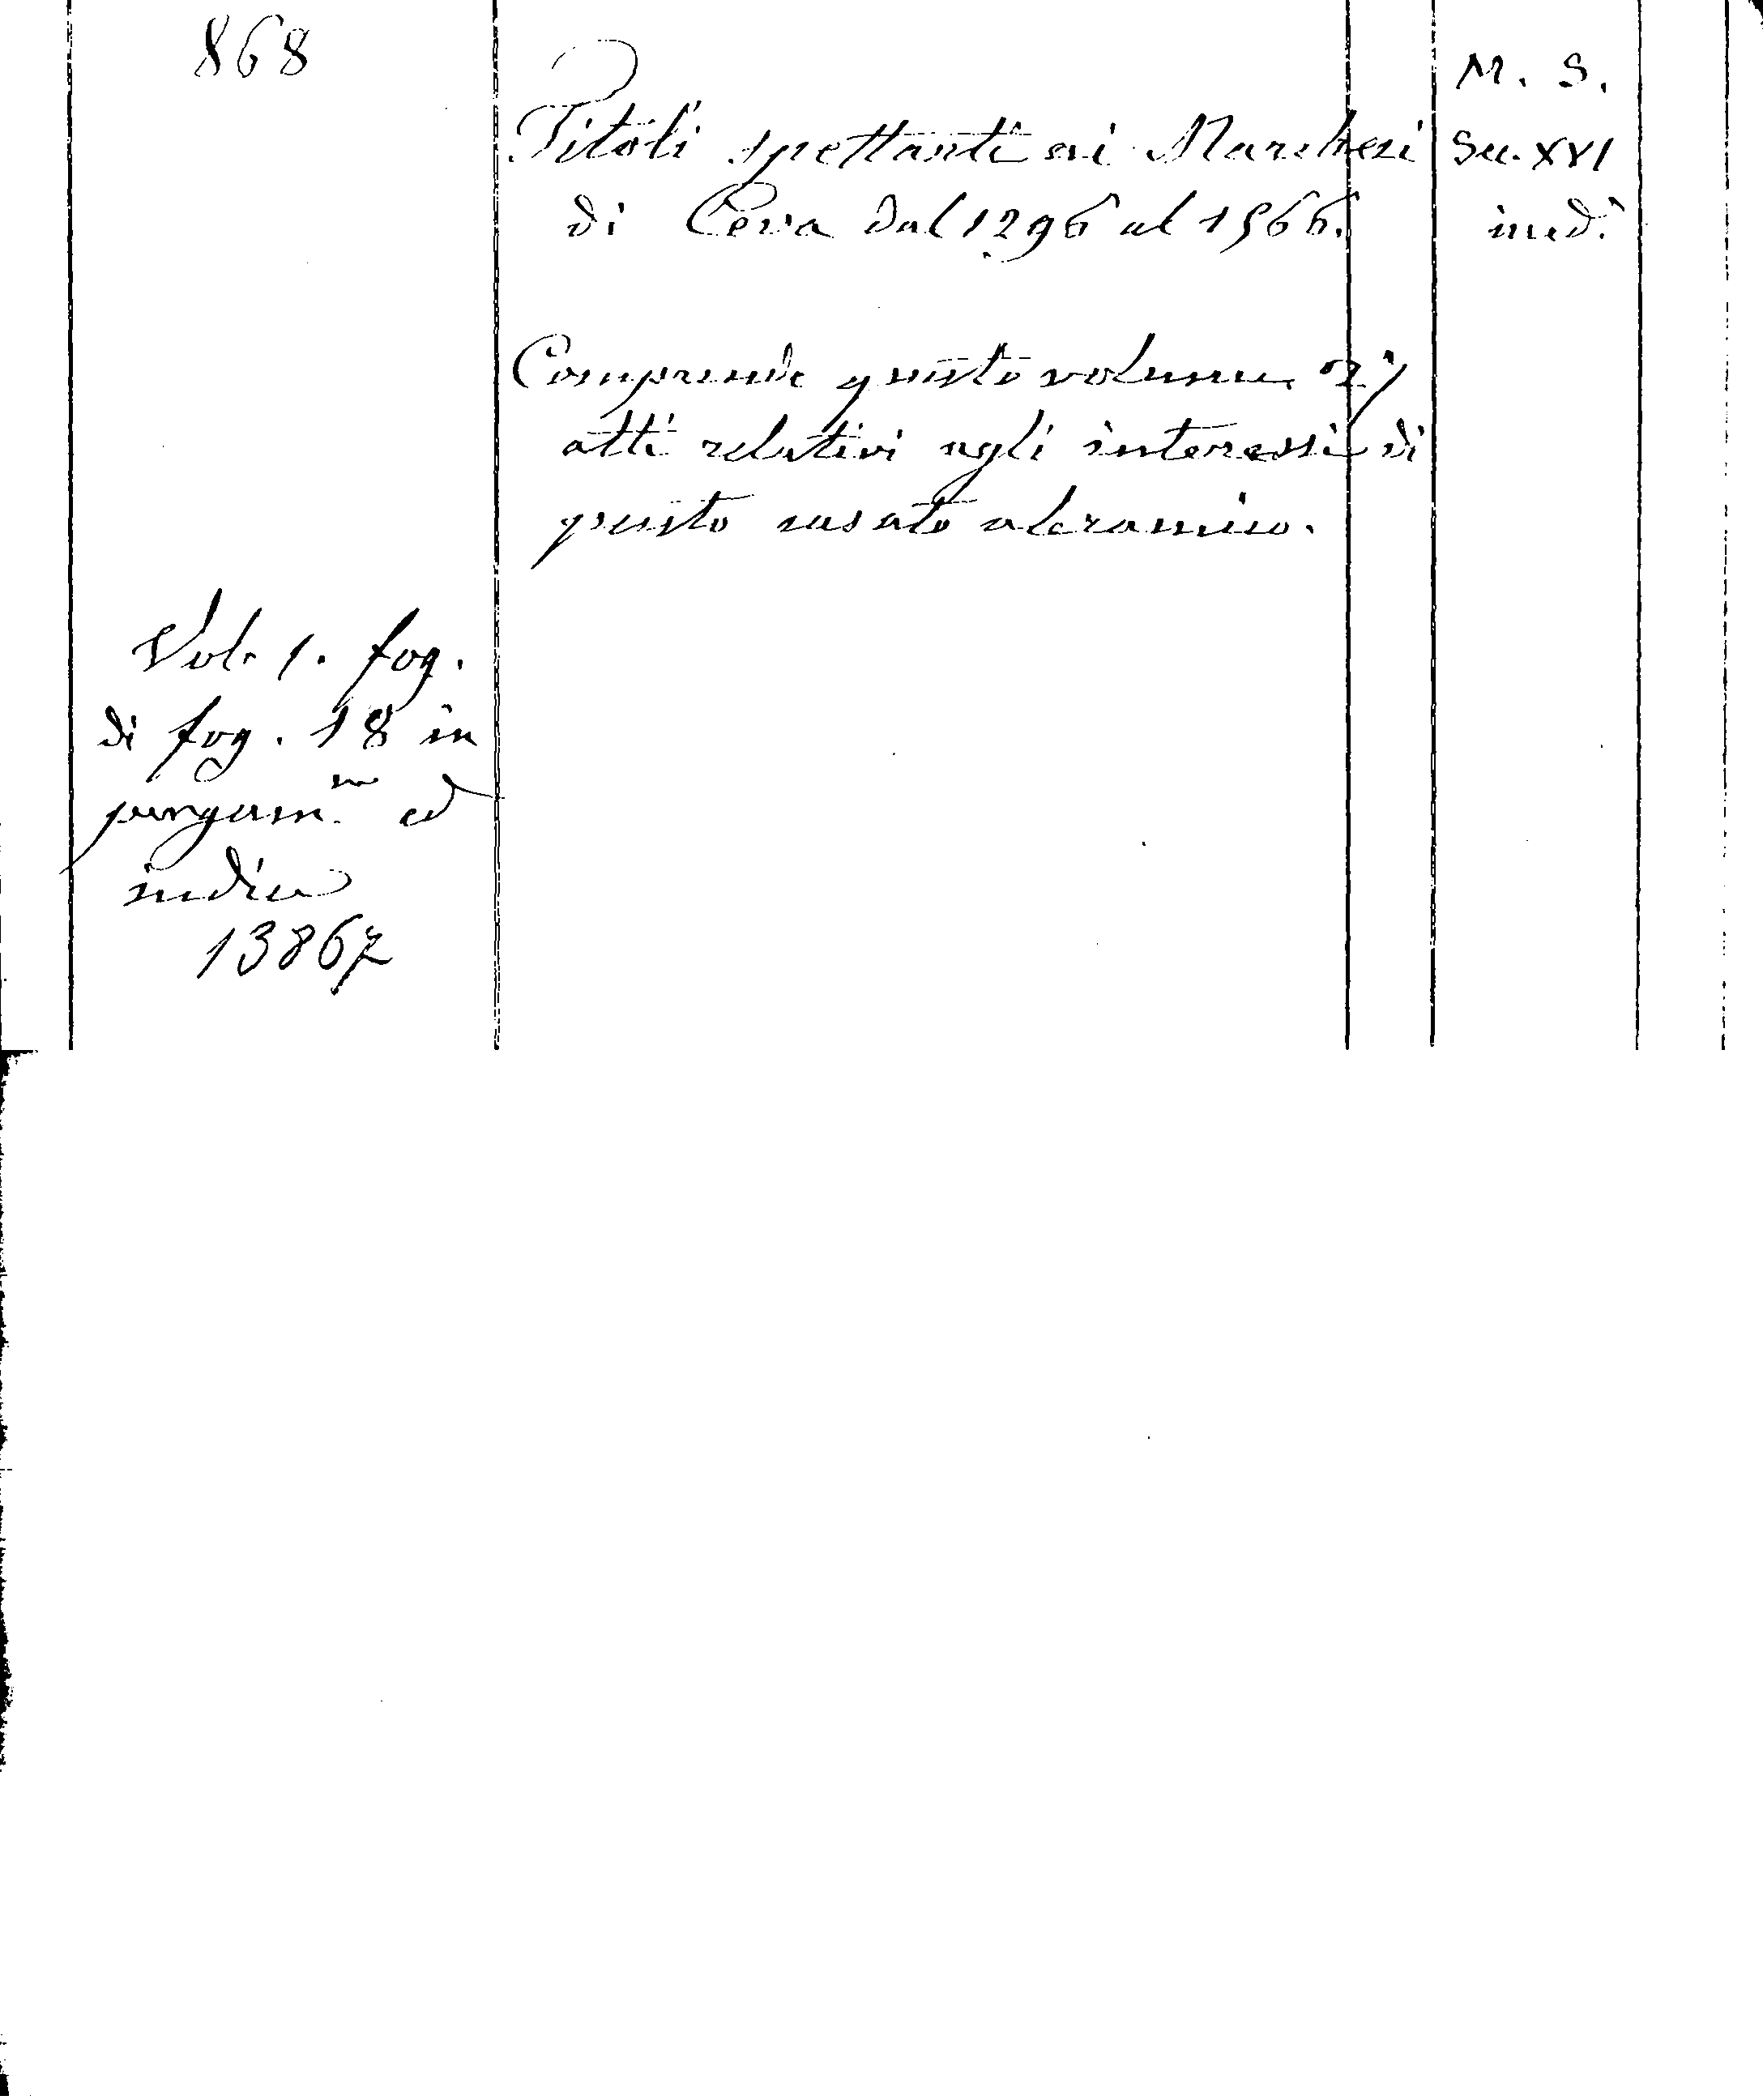 868
Titoli spettanti ai Marchesi
di Ceva dal 1296 al 1566.
M. S.
Sec. XVI
ined.
Comprende questo volume 27
atti relativi agli interessi di
questo casato aleramico.
Vol. 1. fog.
di fog. 18 in
pergam.na ed
indice
13867